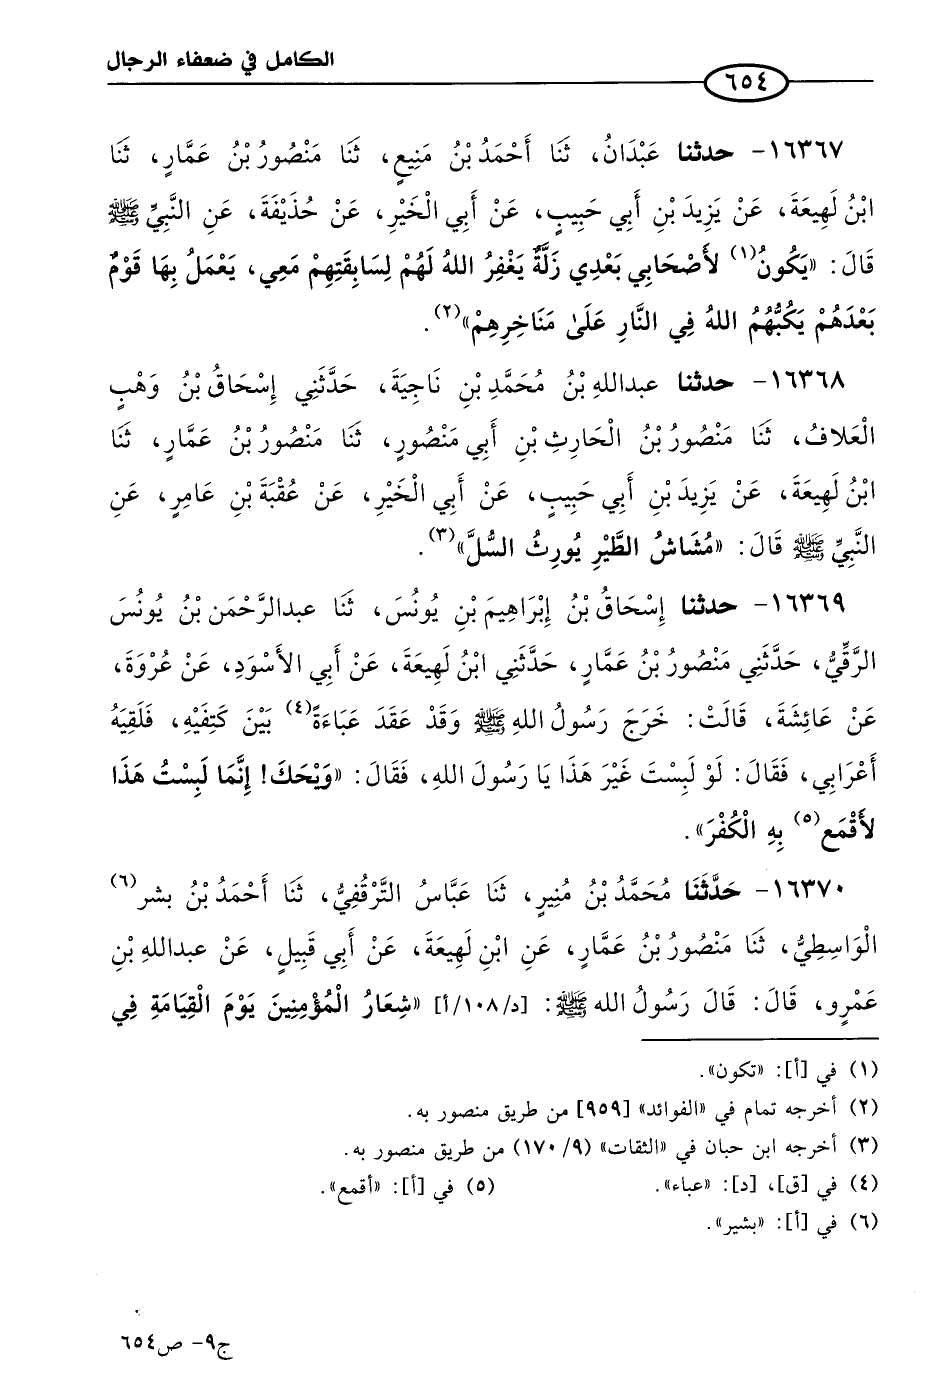 الكامل في ضعفاء الرجال
٦٥٤
١٦٣٦٧- حدثنا عَبْدَانُ، ثَنَا أَحْمَدُ بْنُ مَنِيعٍ، ثَنَا مَنْصُورُ بْنُ عَمَّارٍ، ثَنَا
ابْنُ لَهِيعَةَ، عَنْ يَزِيدَ بْنِ أَبِي حَبِيبٍ، عَنْ أَبِي الْخَيْرِ، عَنْ حُذَيْفَةَ، عَنِ النَّبِيِّ ﷺ
قَالَ: «يَكُونُ(١) لأَصْحَابِي بَعْدِي زَلَّةٌ يَغْفِرُ اللهُ لَهُمْ لِسَابِقَتِهِمْ مَعِي، يَعْمَلُ بِهَا قَوْمٌ
بَعْدَهُمْ يَكُبُّهُمُ اللهُ فِي النَّارِ عَلَىٰ مَنَاخِرِهِمْ»(٢).
١٦٣٦٨- حدثنا عبدالله بْنُ مُحَمَّدِ بْنِ نَاجِيَةَ، حَدَّثَنِي إِسْحَاقُ بْنُ وَهْبٍ
الْعَلافُ، ثَنَا مَنْصُورُ بْنُ الْحَارِثِ بْنِ أَبِي مَنْصُورٍ، ثَنَا مَنْصُورُ بْنُ عَمَّارٍ، ثَنَا
ابْنُ لَهِيعَةَ، عَنْ يَزِيدَ بْنِ أَبِي حَبِيبٍ، عَنْ أَبِي الْخَيْرِ، عَنْ عُقْبَةَ بْنِ عَامِرٍ، عَنِ
النَّبِيِّ ﷺ قَالَ: «مُشَاشُ الطَّيْرِ يُورِثُ السُّلَّ»(٣).
١٦٣٦٩- حدثنا إِسْحَاقُ بْنُ إِبْرَاهِيمَ بْنِ يُونُسَ، ثَنَا عبدالرَّحْمَن بْنُ يُونُسَ
الرَّقِّيُّ، حَدَّثَنِي مَنْصُورُ بْنُ عَمَّارٍ، حَدَّثَنِي ابْنُ لَهِيعَةَ، عَنْ أَبِي الأَسْوَدِ، عَنْ عُرْوَةَ،
عَنْ عَائِشَةَ، قَالَتْ: خَرَجَ رَسُولُ اللهِ ﷺ وَقَدْ عَقَدَ عَبَاءَةً(٤) بَيْنَ كَتِفَيْهِ، فَلَقِيَهُ
أَعْرَابِي، فَقَالَ: لَوْ لَبِسْتَ غَيْرَ هَذَا يَا رَسُولَ اللهِ، فَقَالَ: «وَيْحَكَ! إِنَّمَا لَبِسْتُ هَذَا
لأَقْمَع(٥) بِهِ الْكُفْرَ».
١٦٣٧٠- حَدَّثَنَا مُحَمَّدُ بْنُ مُنِيرٍ، ثَنَا عَبَّاسُ التَّرْقُفِيُّ، ثَنَا أَحْمَدُ بْنُ بشر(٦)
الْوَاسِطِيُّ، ثَنَا مَنْصُورُ بْنُ عَمَّارٍ، عَنِ ابْنِ لَهِيعَةَ، عَنْ أَبِي قَبِيلٍ، عَنْ عبداللهِ بْنِ
عَمْرٍو، قَالَ: قَالَ رَسُولُ الله ﷺ: [د/١٠٨/أ] «شِعَارُ الْمُؤْمِنِينَ يَوْمَ الْقِيَامَةِ فِي
(١) في [أ]: «تكون».
(٢) أخرجه تمام في «الفوائد» [٩٥٩] من طريق منصور به.
(٣) أخرجه ابن حبان في «الثقات» (٩/١٧٠) من طريق منصور به.
(٤) في [ق]، [د]: «عباء». (٥) في [أ]: «أقمع».
(٦) في [أ]: «بشير».
ج٩- ص٦٥٤